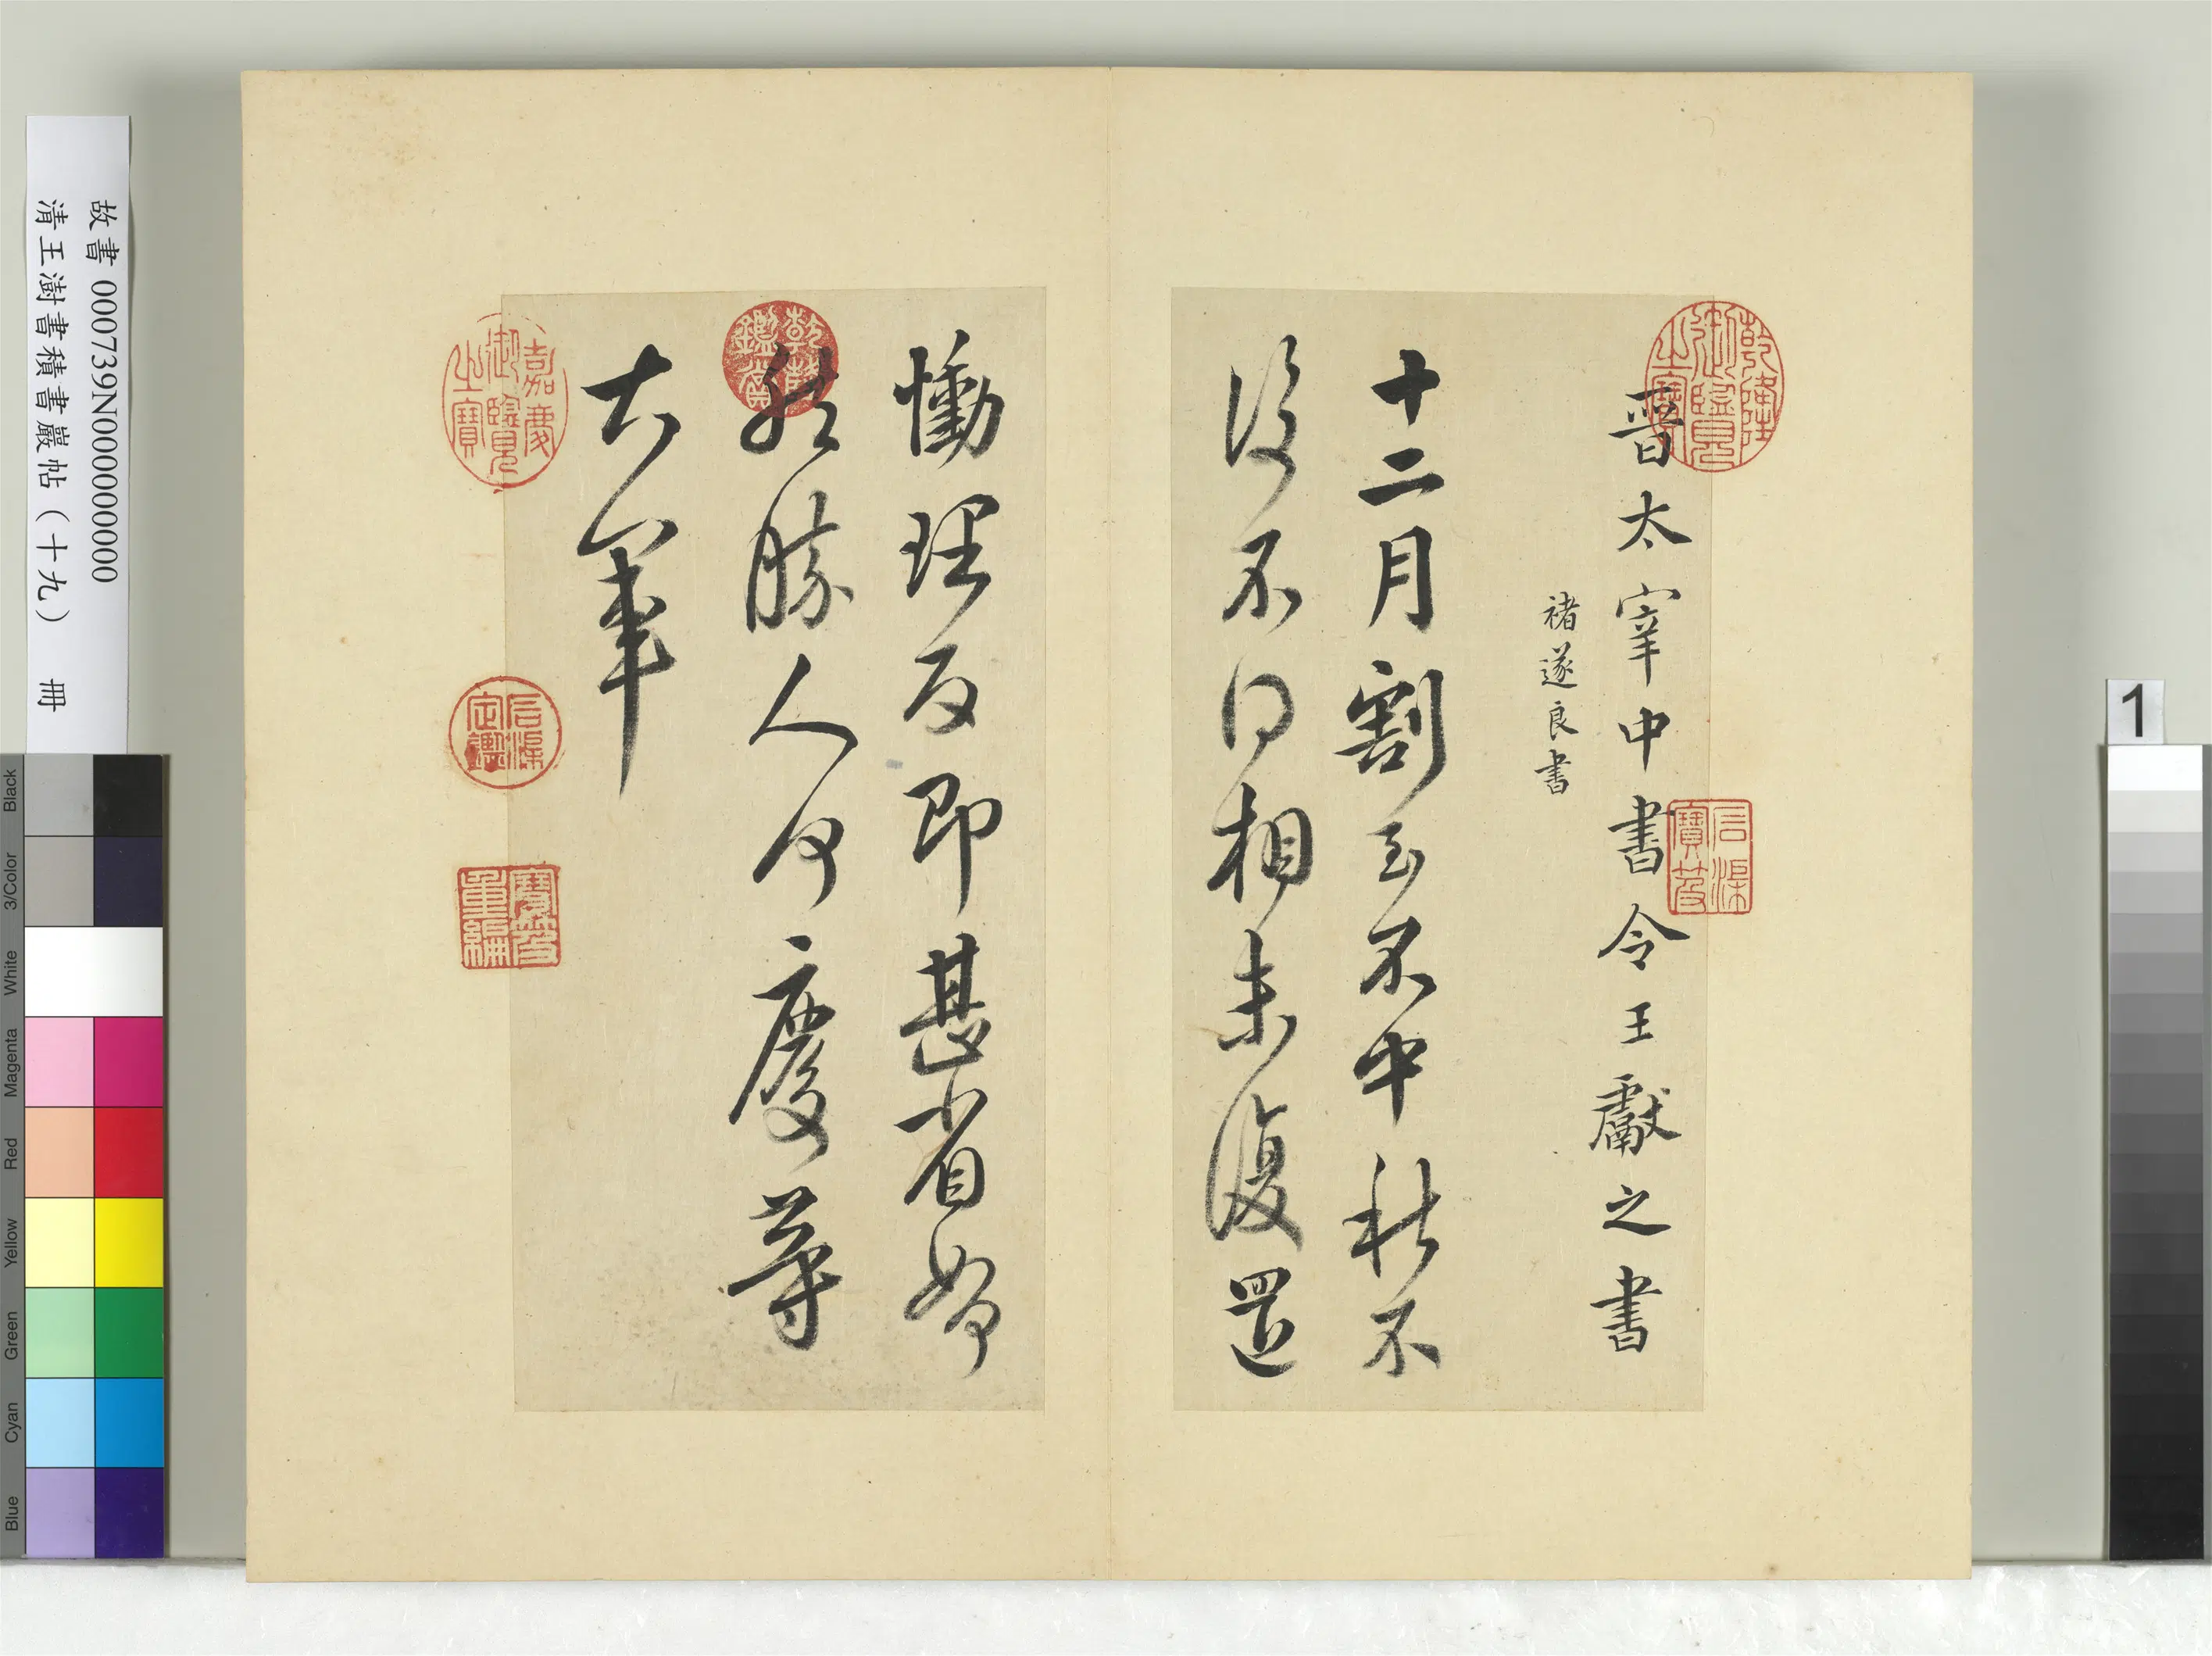 晉太宰中書令王獻之書
褚遂良書
十二月割至不中秋不
復不得相未復還
慟理為即甚省如何
然勝人何慶等
大軍
乾隆御覽之寶
石渠寶笈
乾隆鑑賞
嘉慶御覽之寶
石渠定鑑
寶笈重編
故書 000739N000000000
清王澍書積書巖帖（十九） 冊
1
Black
3/Color
White
Magenta
Red
Yellow
Green
Cyan
Blue